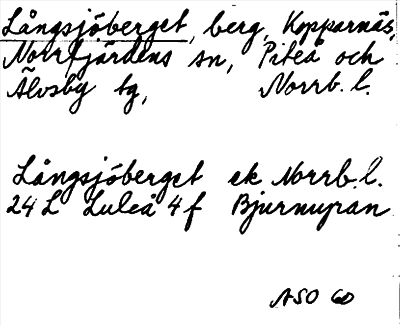 Långsjöberget, berg, Kopparnäs,
Norrfjärdens sn, Piteå och
Älvsby tg, Norrb. l.
Långsjöberget ek Norrb. l.
24 L Luleå 4 f Bjurnupan
ASO 60